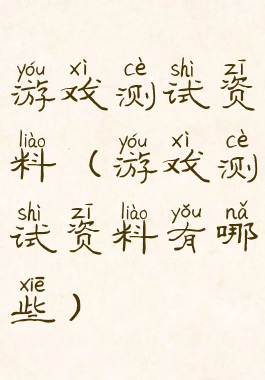 yóu xì cè shì zī
游戏测试资
liào yóu xì cè
料（游戏测
shì zī liào yǒu nǎ
试资料有哪
xiē
些）